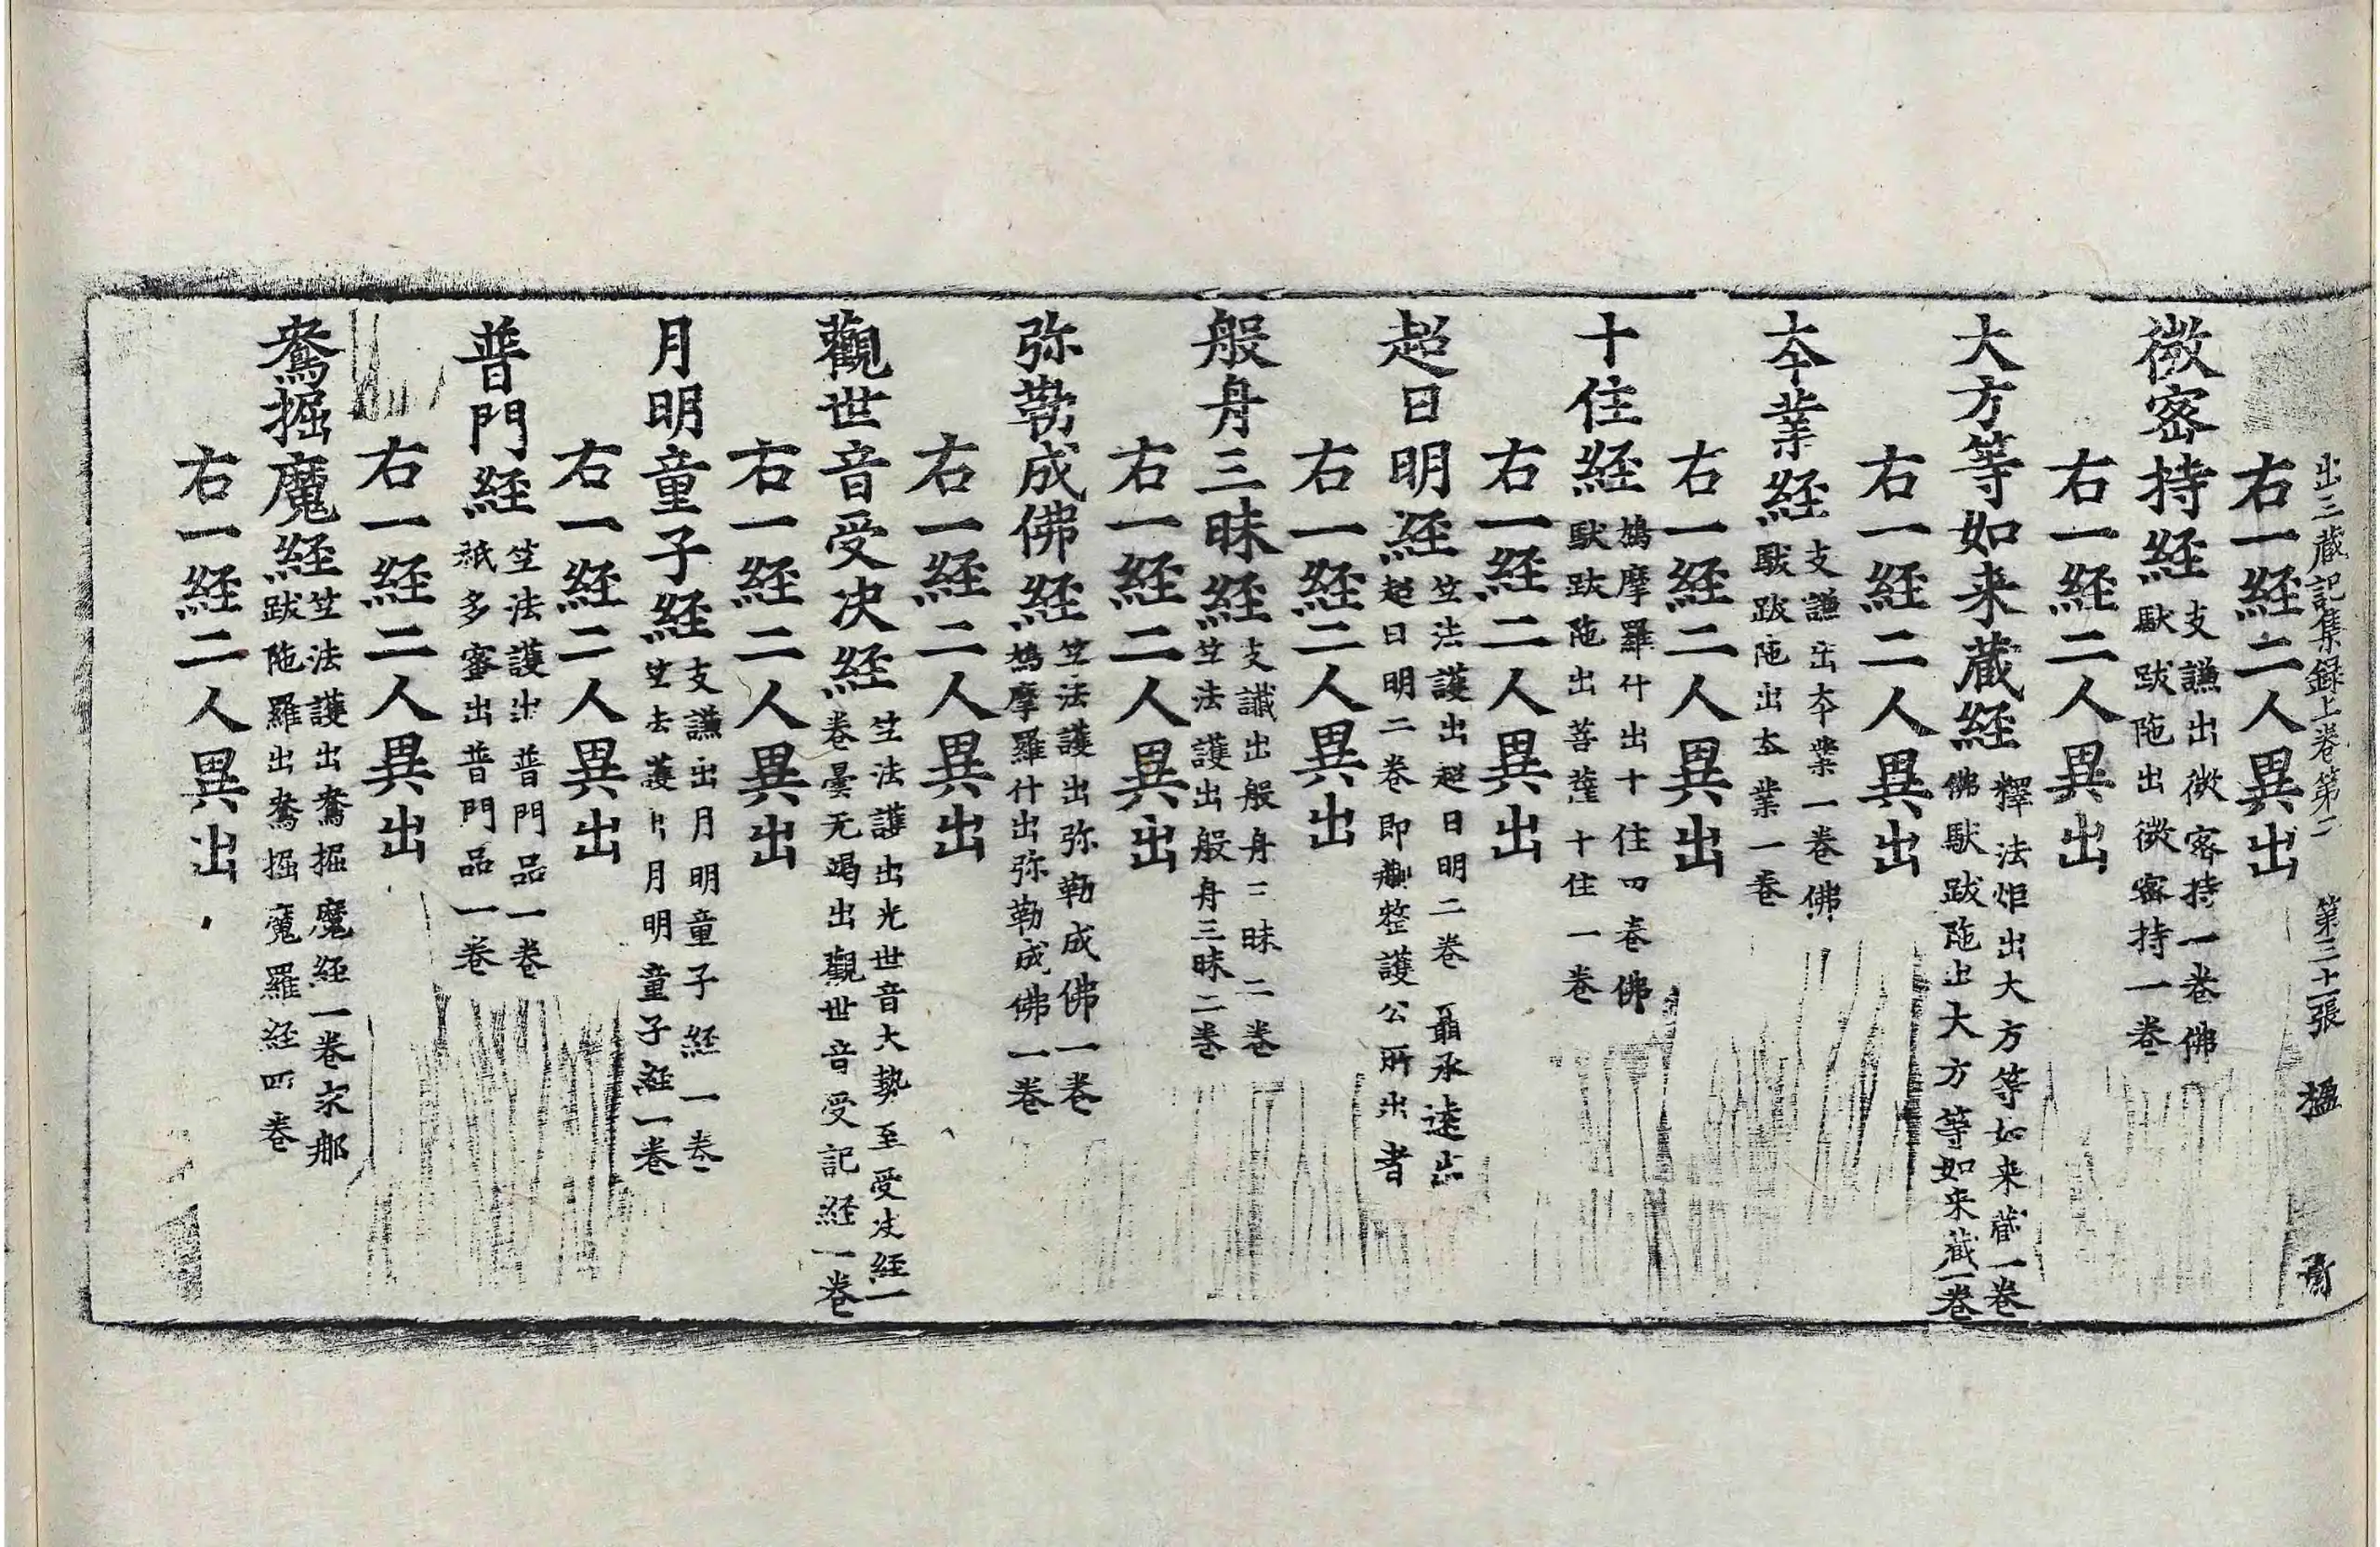 出三蔵記集録上卷第二　第三十一張　楹
右一経二人異出
微密持経 支謙出微密持一卷佛
䭾跋陁出微密持一卷
右一経二人異出
大方等如来蔵経 釋法炬出大方等如来蔵一卷
佛䭾跋陁出大方等如来蔵一卷
右一経二人異出
夲業経 支謙出夲業一卷佛
䭾跋陁出夲業一卷
右一経二人異出
十住経 鳩摩羅什出十住四卷佛
䭾跋陁出菩薩十住一卷
右一経二人異出
超日明経 竺法護出超日明二卷 聶承逺出
超日明二卷即刪整護公所出者
右一経二人異出
般舟三昧経 支讖出般舟三昧二卷
竺法護出般舟三昧二卷
右一経二人異出
弥勒成佛経 竺法護出弥勒成佛一卷
鳩摩羅什出弥勒成佛一卷
右一経二人異出
觀世音受决経 竺法護出光世音大勢至受决経一
卷曇无竭出觀世音受記経一卷
右一経二人異出
月明童子経 支謙出月明童子経一卷
竺法護出月明童子経一卷
右一経二人異出
普門経 竺法護出普門品一卷
祇多蜜出普門品一卷
右一経二人異出
鴦掘魔経 竺法護出鴦掘魔経一卷求那
跋陁羅出鴦掘魔羅経四卷
右一経二人異出